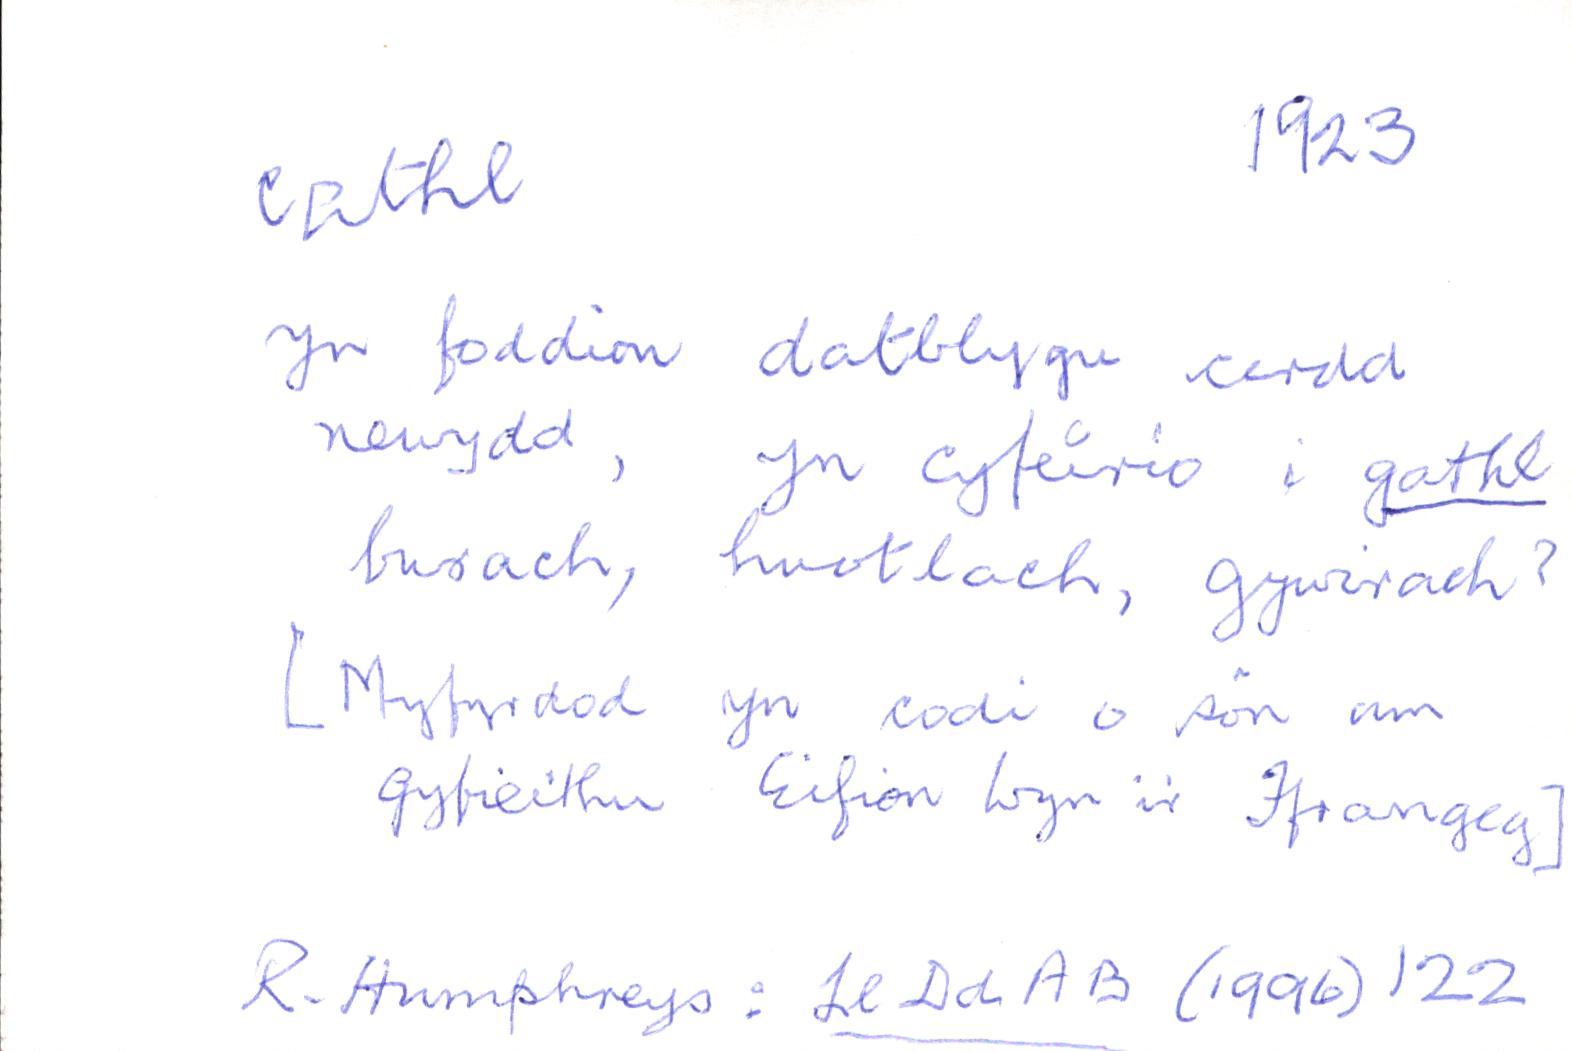 1923
cathl
yn foddion datblygu cerdd
newydd, yn cyfeirio i gathl
burach, hwotlach, gywirach?
[Myfyrdod yn codi o sôn am
gyfieithu Eifion Wyn i'r Ffrangeg]
R. Humphreys: Ll Dd A B (1996) 122